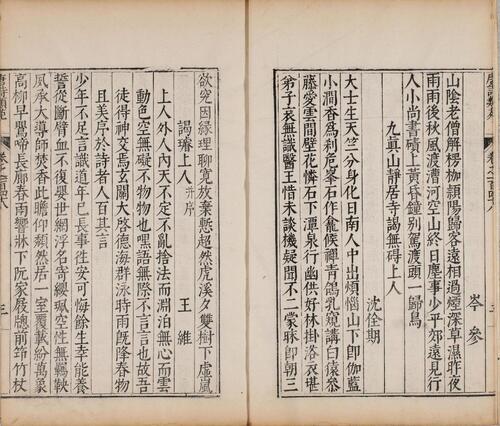 岑參
山陰老僧解楞枷頴陽歸客遠相過煙深草濕昨夜
雨雨後秋風渡漕河空山終日塵事少平郊遠見行
人小尚書磧上黃昏鐘別駕渡頭一歸鳥
九真山靜居寺謁無碍上人
沈佺期
大士生天竺分身化日南人中出煩惱山下卽伽藍
小澗香爲刹危峯石作龕候禪青鴿乳窺講白猿參
藤愛雲間壁花憐石下潭泉行幽供好林掛浴衣堪
弟子哀無識醫王惜未談機疑聞不二蒙昧卽朝三
欲究因緣理聊寬放棄慙超然虎溪夕雙樹下虛嵐
謁璿上人并序
王維
上人外人內天不定不亂捨法而淵泊無心而雲
動色空無礙不物物也嘿語無際不言言也故吾
徒得神交焉玄關大啓德海群泳時雨旣降春物
且美序於詩者人百其言
少年不足言識道年已長事往安可悔餘生幸能養
誓從斷臂血不復嬰世網浮名寄纓珮空性無羈鞅
夙承大導師焚香此瞻仰頹然居一室覆載紛萬象
高柳早鸎啼長廊春雨響牀下阮家屐牕前筇竹杖
三